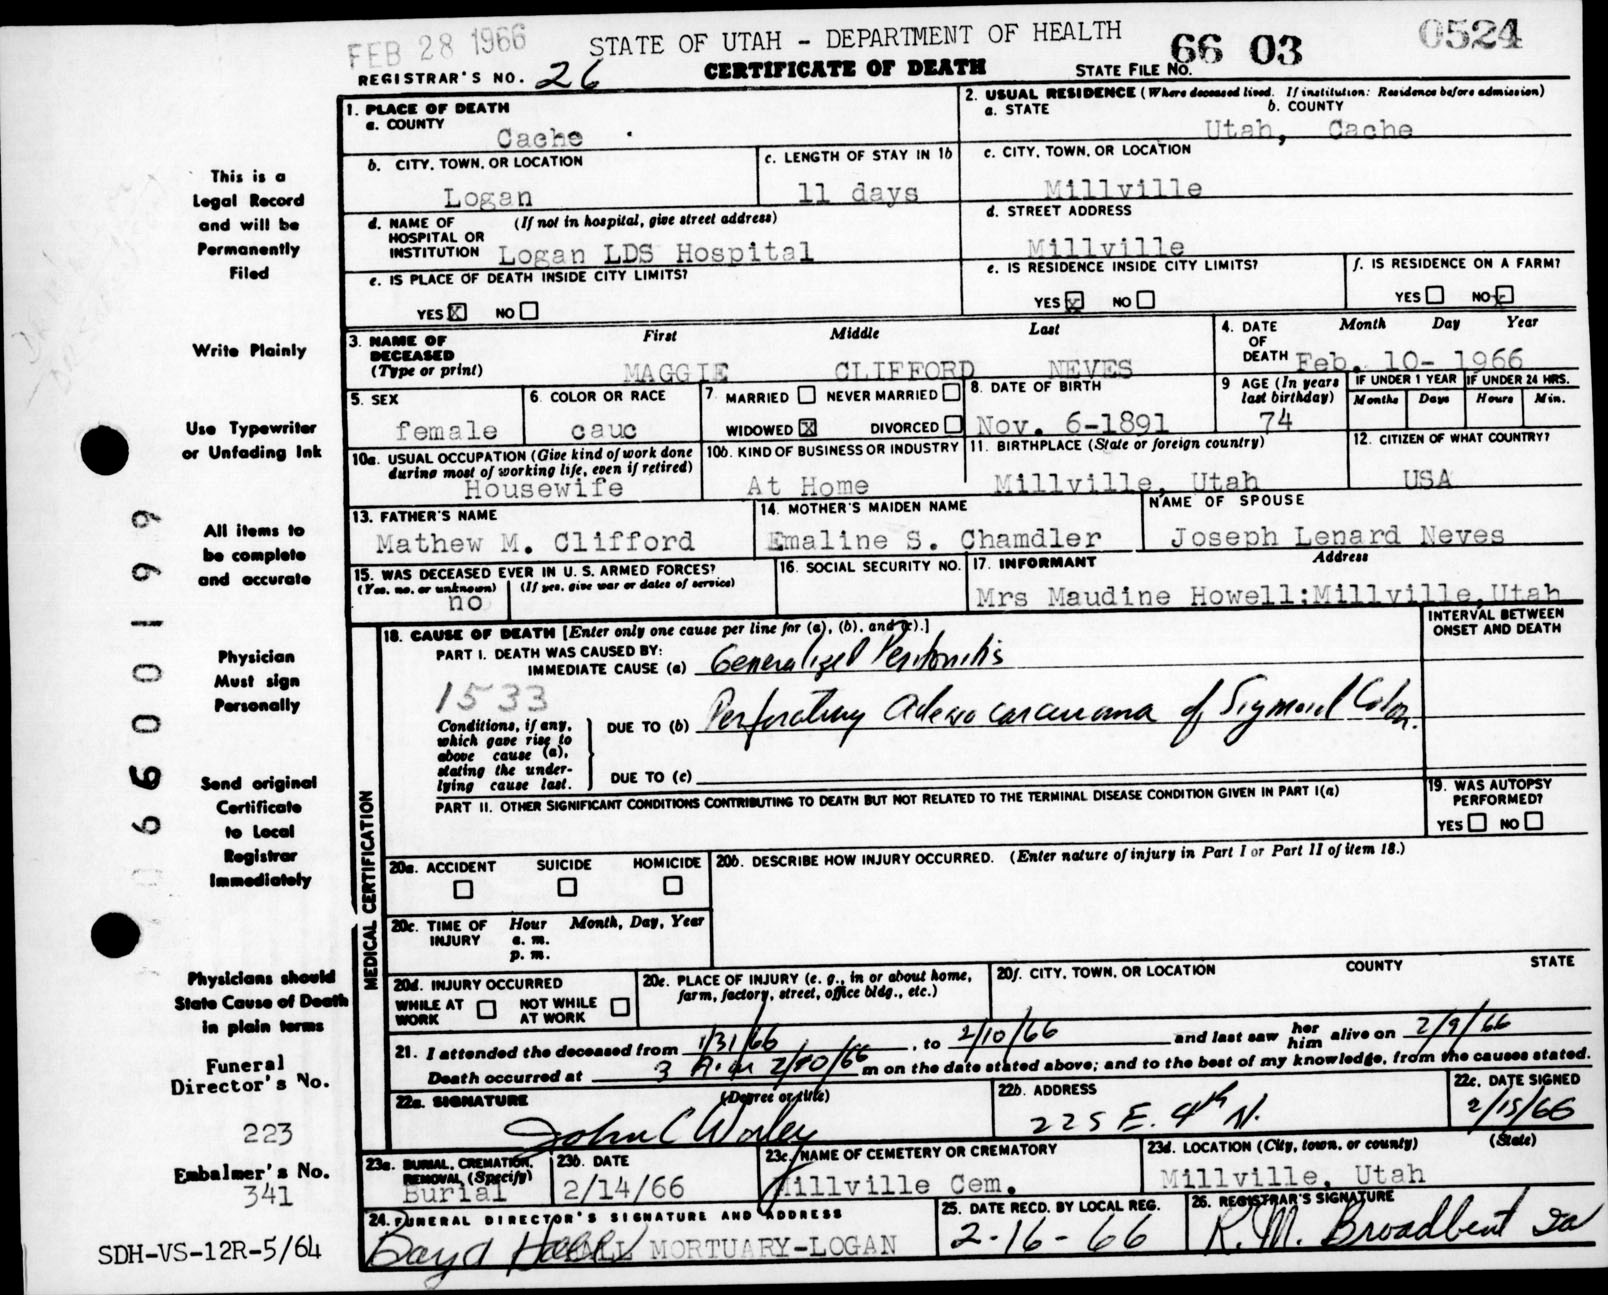 FEB 28 1966
STATE OF UTAH - DEPARTMENT OF HEALTH
66 03
0524
REGISTRAR'S NO. 26
CERTIFICATE OF DEATH
STATE FILE NO.
1. PLACE OF DEATH
a. COUNTY
Cache
2. USUAL RESIDENCE (Where deceased lived. If institution: Residence before admission)
a. STATE
b. COUNTY
Utah, Cache
b. CITY, TOWN, OR LOCATION
Logan
c. LENGTH OF STAY IN 1b
11 days
c. CITY, TOWN, OR LOCATION
Millville
d. NAME OF HOSPITAL OR INSTITUTION
(If not in hospital, give street address)
Logan LDS Hospital
d. STREET ADDRESS
Millville
e. IS PLACE OF DEATH INSIDE CITY LIMITS?
YES X NO
e. IS RESIDENCE INSIDE CITY LIMITS?
YES X NO
f. IS RESIDENCE ON A FARM?
YES NO
3. NAME OF DECEASED
(Type or print)
First Middle Last
MAGGIE CLIFFORD NEVES
4. DATE OF DEATH
Month Day Year
Feb. 10- 1966
5. SEX
female
6. COLOR OR RACE
cauc
7. MARRIED NEVER MARRIED
WIDOWED X DIVORCED
8. DATE OF BIRTH
Nov. 6-1891
9 AGE (In years last birthday)
74
IF UNDER 1 YEAR
Months Days
IF UNDER 24 HRS.
Hours Min.
10a. USUAL OCCUPATION (Give kind of work done during most of working life, even if retired)
Housewife
10b. KIND OF BUSINESS OR INDUSTRY
At Home
11. BIRTHPLACE (State or foreign country)
Millville, Utah
12. CITIZEN OF WHAT COUNTRY?
USA
13. FATHER'S NAME
Mathew M. Clifford
14. MOTHER'S MAIDEN NAME
Emaline S. Chamdler
NAME OF SPOUSE
Joseph Lenard Neves
15. WAS DECEASED EVER IN U. S. ARMED FORCES?
(Yes, no, or unknown) (If yes, give war or dates of service)
no
16. SOCIAL SECURITY NO.
17. INFORMANT
Address
Mrs Maudine Howell:Millville,Utah
MEDICAL CERTIFICATION
18. CAUSE OF DEATH [Enter only one cause per line for (a), (b), and (c).]
INTERVAL BETWEEN ONSET AND DEATH
PART I. DEATH WAS CAUSED BY:
IMMEDIATE CAUSE (a) Generalized Peritonitis
1533
Conditions, if any, which gave rise to above cause (a), stating the underlying cause last.
DUE TO (b) Perforating Adenocarcinoma of Sigmoid Colon.
DUE TO (c)
PART II. OTHER SIGNIFICANT CONDITIONS CONTRIBUTING TO DEATH BUT NOT RELATED TO THE TERMINAL DISEASE CONDITION GIVEN IN PART I(a)
19. WAS AUTOPSY PERFORMED?
YES NO
20a. ACCIDENT SUICIDE HOMICIDE
20b. DESCRIBE HOW INJURY OCCURRED. (Enter nature of injury in Part I or Part II of item 18.)
20c. TIME OF INJURY
Hour Month, Day, Year
a. m.
p. m.
20d. INJURY OCCURRED
WHILE AT WORK NOT WHILE AT WORK
20e. PLACE OF INJURY (e. g., in or about home, farm, factory, street, office bldg., etc.)
20f. CITY, TOWN, OR LOCATION COUNTY STATE
21. I attended the deceased from 1/31/66, to 2/10/66 and last saw her him alive on 2/9/66
Death occurred at 3 A.m 2/10/66 m on the date stated above; and to the best of my knowledge, from the causes stated.
22a. SIGNATURE (Degree or title)
John C Worley
22b. ADDRESS
225 E. 4th N.
22c. DATE SIGNED
2/15/66
23a. BURIAL, CREMATION, REMOVAL, (Specify)
Burial
23b. DATE
2/14/66
23c. NAME OF CEMETERY OR CREMATORY
Millville Cem.
23d. LOCATION (City, town, or county) (State)
Millville, Utah
24. FUNERAL DIRECTOR'S SIGNATURE AND ADDRESS
Boyd Hall HALL MORTUARY-LOGAN
25. DATE RECD. BY LOCAL REG.
2-16-66
26. REGISTRAR'S SIGNATURE
R. M. Broadbent
This is a
Legal Record
and will be
Permanently
Filed
Write Plainly
Use Typewriter
or Unfading Ink
All items to
be complete
and accurate
Physician
Must sign
Personally
Send original
Certificate
to Local
Registrar
Immediately
Physicians should
State Cause of Death
in plain terms
Funeral
Director's No.
223
Embalmer's No.
341
SDH-VS-12R-5/64
06600199